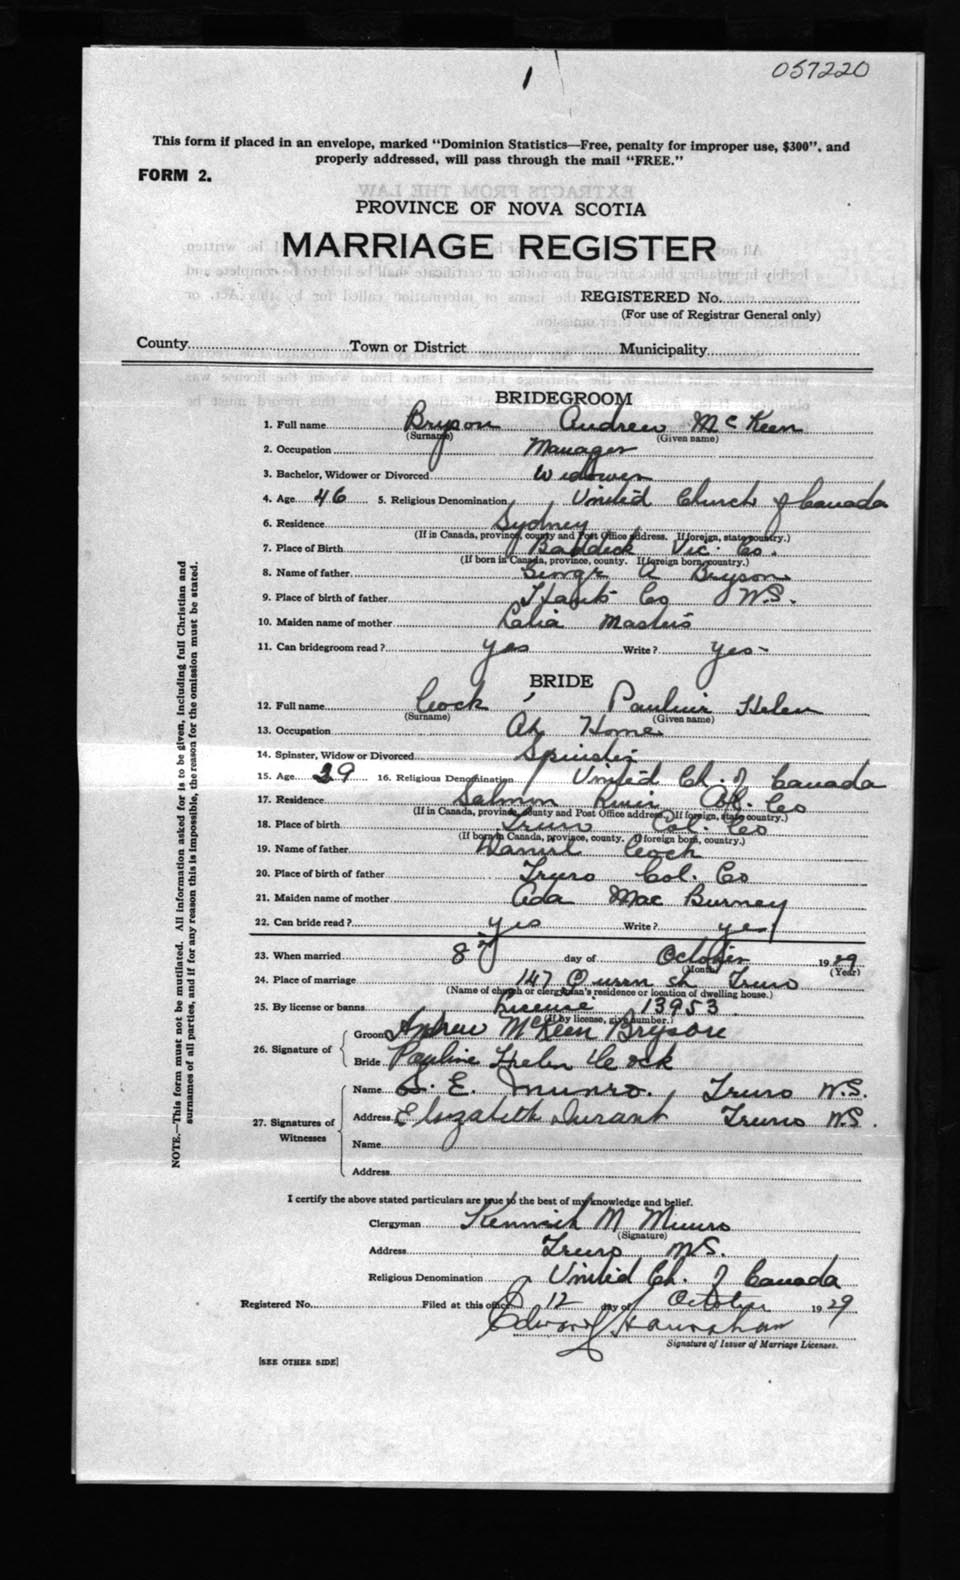 057220
This form if placed in an envelope, marked "Dominion Statistics—Free, penalty for improper use, $300", and
properly addressed, will pass through the mail "FREE."
FORM 2.
PROVINCE OF NOVA SCOTIA
MARRIAGE REGISTER
REGISTERED No.
(For use of Registrar General only)
County Town or District Municipality
BRIDEGROOM
1. Full name Bryson Andrew McKeen
(Surname) (Given name)
2. Occupation Manager
3. Bachelor, Widower or Divorced Widower
4. Age 46 5. Religious Denomination United Church of Canada
6. Residence Sydney
(If in Canada, province, county and Post Office address. If foreign, state country.)
7. Place of Birth Baddeck Vic. Co.
(If born in Canada, province, county. If foreign born, country.)
8. Name of father George A Bryson
9. Place of birth of father Hants Co N.S.
10. Maiden name of mother Masters
11. Can bridegroom read? yes Write? yes
BRIDE
12. Full name Cock, Pauline Helen
(Surname) (Given name)
13. Occupation At Home
14. Spinster, Widow or Divorced Spinster
15. Age 29 16. Religious Denomination United Ch. of Canada
17. Residence Salmon River Col. Co
(If in Canada, province, county and Post Office address. If foreign, state country.)
18. Place of birth Truro Col. Co
(If born in Canada, province, county. If foreign born, country.)
19. Name of father Daniel Cock
20. Place of birth of father Truro Col. Co
21. Maiden name of mother Ada Mac Burney
22. Can bride read? yes Write? yes
23. When married 8 day of October 1929
(Month) (Year)
24. Place of marriage 147 Queen st Truro
(Name of church or clergyman's residence or location of dwelling house.)
25. By license or banns License 13953
(If by license, give number.)
26. Signature of Groom Andrew McKeen Bryson
Bride Pauline Helen Cock
27. Signatures of Witnesses Name E. Munro. Truro N.S.
Address Elizabeth Durant Truro N.S.
Name
Address
I certify the above stated particulars are true to the best of my knowledge and belief.
Clergyman Kenneth M Munro
(Signature)
Address Truro N.S.
Religious Denomination United Ch. of Canada
Registered No. Filed at this office 12 day of October 1929
Edward Hanrahan
Signature of Issuer of Marriage Licenses.
[SEE OTHER SIDE]
NOTE.—This form must not be mutilated. All information asked for is to be given, including full Christian and
surnames of all parties, and if for any reason this is impossible, the reason for the omission must be stated.